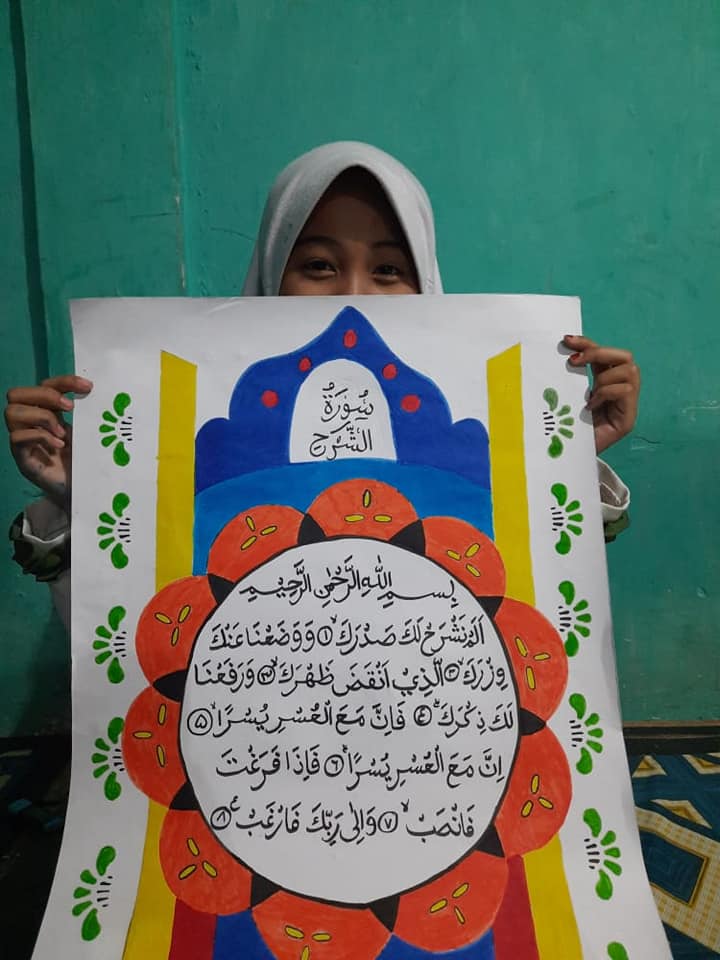 سُورَةُ
الشَّرْحِ
بِسْمِ اللّٰهِ الرَّحْمٰنِ الرَّحِيْمِ
اَلَمْ نَشْرَحْ لَكَ صَدْرَكَۙ ١ وَوَضَعْنَا عَنْكَ
وِزْرَكَۙ ٢ الَّذِيْٓ اَنْقَضَ ظَهْرَكَۙ ٣ وَرَفَعْنَا
لَكَ ذِكْرَكَۗ ٤ فَاِنَّ مَعَ الْعُسْرِ يُسْرًاۙ ٥
اِنَّ مَعَ الْعُسْرِ يُسْرًاۗ ٦ فَاِذَا فَرَغْتَ
فَانْصَبْۙ ٧ وَاِلٰى رَبِّكَ فَارْغَبْ ࣖ ٨